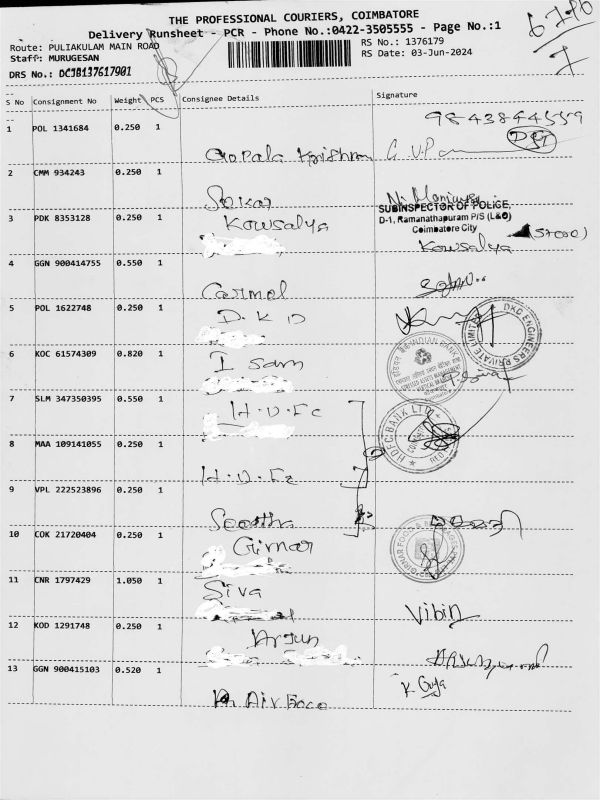 THE PROFESSIONAL COURIERS, COIMBATORE
Delivery Runsheet - PCR - Phone No.:0422-3505555 - Page No.:1
Route: PULIAKULAM MAIN ROAD
RS No.: 1376179
Staff: MURUGESAN
RS Date: 03-Jun-2024
DRS No.: DCJB137617901
S No Consignment No Weight PCS Consignee Details Signature
9843844559
1 POL 1341684 0.250 1
Gopala Krishnan G.V.P
2 CMM 934243 0.250 1
Sekar
SUBINSPECTOR OF POLICE,
D-1, Ramanathapuram P/S (L&O)
Coimbatore City
3 PDK 8353128 0.250 1 Kowsalya
Kowsalya
4 GGN 900414755 0.550 1
Carmel
5 POL 1622748 0.250 1 D.K.D
DKD ENGINEERS PRIVATE LIMITED
6 KOC 61574309 0.820 1 I sam
INDIAN BANK
7 SLM 347350395 0.550 1 H.D.Fc
HDFC BANK LTD
8 MAA 109141055 0.250 1
H.D.Fc
9 VPL 222523896 0.250 1
Seetha
10 COK 21720404 0.250 1 Girnar
11 CNR 1797429 1.050 1 Siva
Vibin
12 KOD 1291748 0.250 1 Arjun
13 GGN 900415103 0.520 1
K. Guja
Air Foce